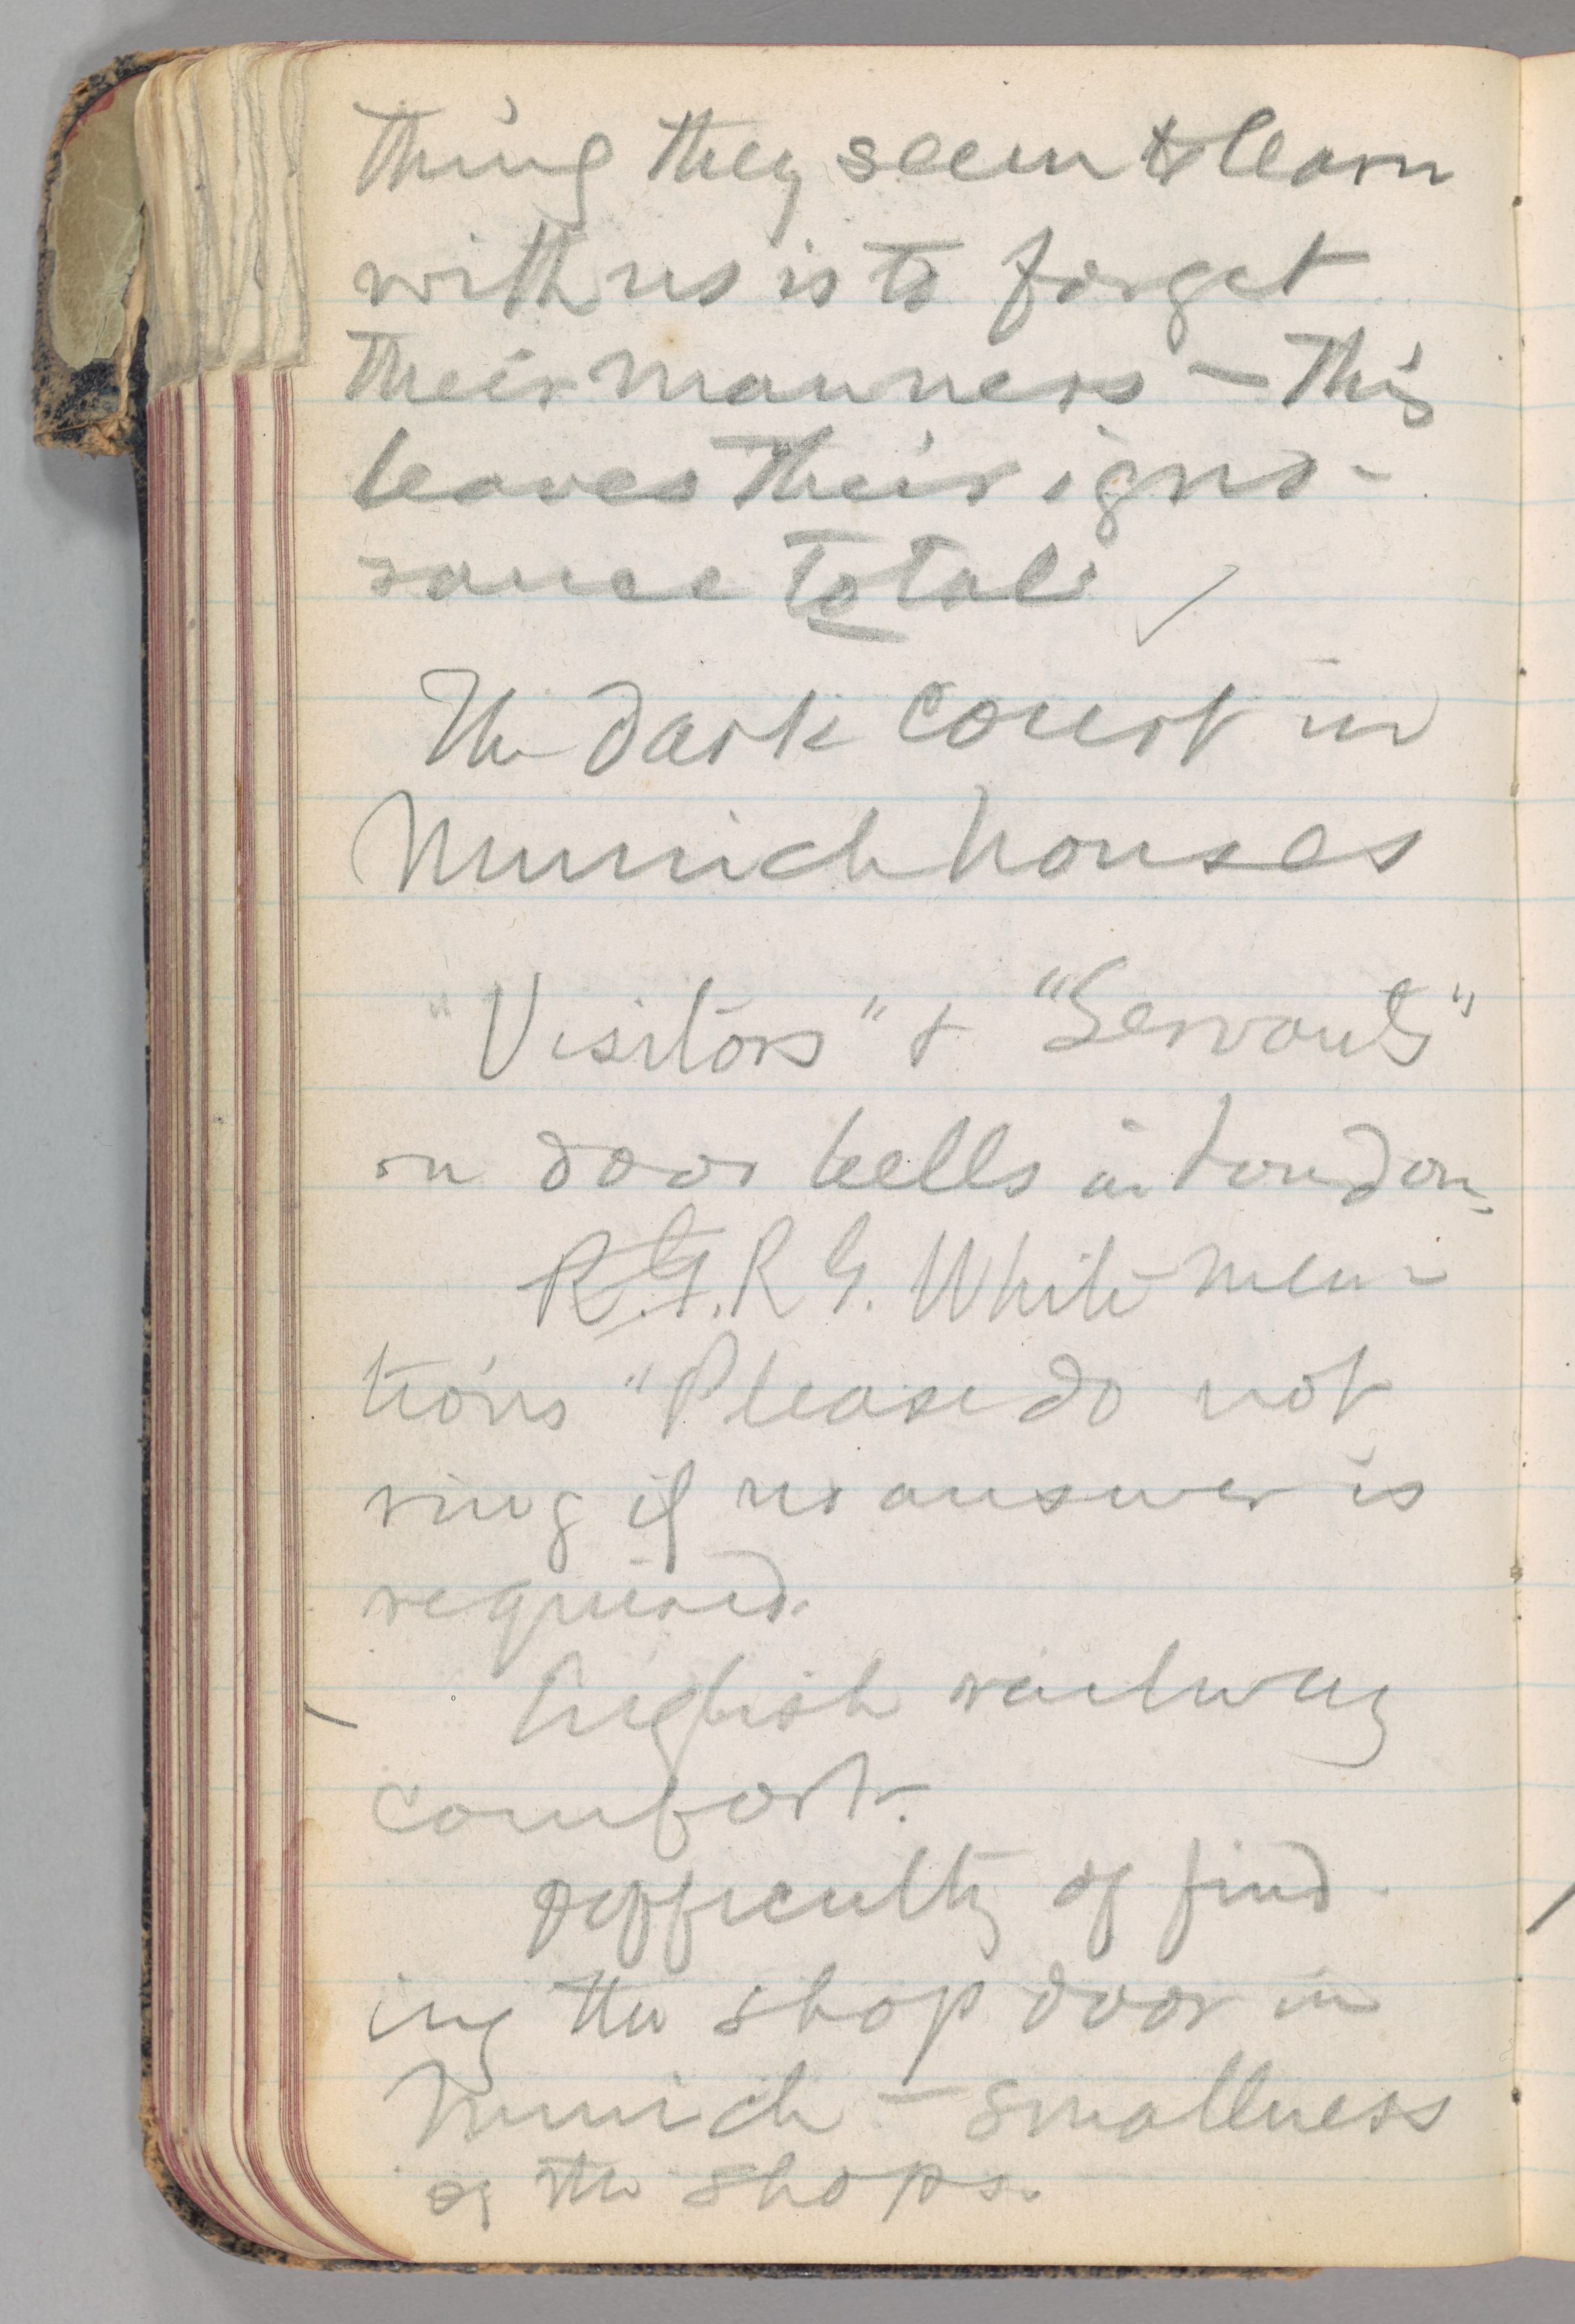 thing they seem to learn
with us is to forget
their manners — this
leaves their igno-
rance total
The dark court in
Munich houses
"Visitors" & "Servants"
on door bells in London.
R. G. R G. White men-
tions "Please do not
ring if no answer is
required.
English railway
comfort.
Difficulty of find
ing the shop door in
Munich — smallness
of the shops.